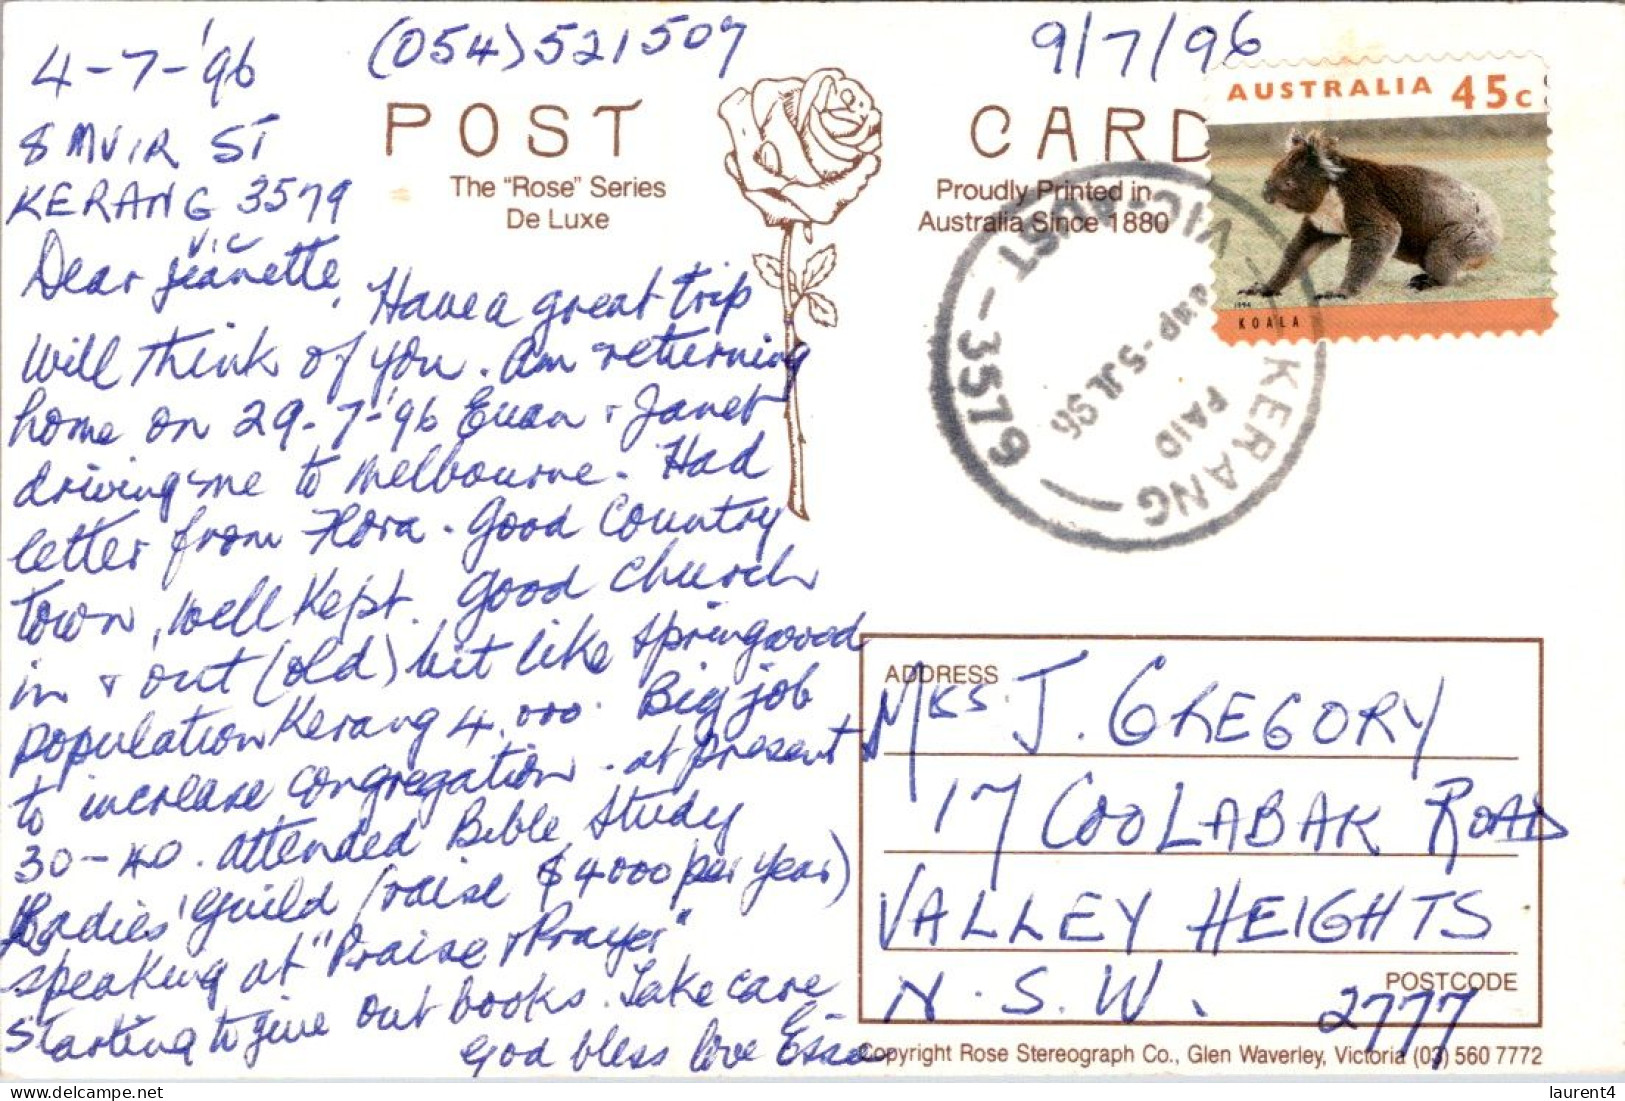 4-7-'96
(054) 521507
9/7/96
8 MUIR ST
KERANG 3579
VIC
Dear Jeanette,
Have a great trip
will think of you. Am returning
home on 29-7-'96 Euan & Janet
driving me to Melbourne. Had
letter from Flora. Good Country
Town, well kept. Good church
in & out (old) bit like Springwood
population Kerang 4.000. Big job
to increase congregation. at present
30-40. attended Bible Study
Ladies' Guild (raise $4000 per year)
speaking at "Praise & Prayer"
Starting to give out books. Take care
God bless love
POST CARD
The "Rose" Series
De Luxe
Proudly Printed in
Australia Since 1880
AUSTRALIA 45c
1994
KOALA
KERANG VIC-AUST-3579
PAID
-5JL96
ADDRESS
MRS J. GREGORY
17 COOLABAH ROAD
VALLEY HEIGHTS
N.S.W.
POSTCODE
2777
Copyright Rose Stereograph Co., Glen Waverley, Victoria (03) 560 7772
laurent4